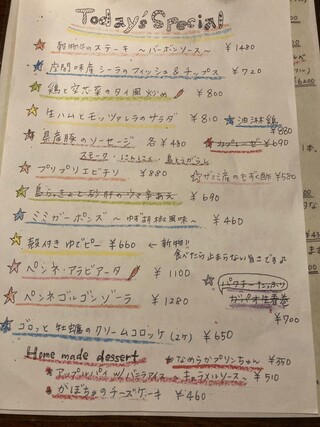 Today's Special
穀物牛のステーキ ～バーボンソース～ ¥1480
座間味産シーラのフィッシュ&チップス ¥720
鶏と空芯菜のタイ風炒め ¥800
生ハムとモッツァレラのサラダ ¥810
油淋鶏 ¥880
県産豚のソーセージ 各¥480
スモーク・にんにく・島とうがらし
カプレーゼ ¥690
プリプリエビチリ ¥880
ザミ産のもずく酢 ¥580
島らっきょと砂肝のウマ辛あえ ¥690
ミミガーポンズ ～ゆず胡椒風味～ ¥460
殻付きゆでピー ¥660 ← 新物!!
食べだら止まらない旨さですよ
ペンネ・アラビアータ ¥1100
パクチーたっぷり
ガパオ生春巻 ¥700
ペンネゴルゴンゾーラ ¥1280
ゴロッと牡蠣のクリームコロッケ(2ケ) ¥650
Home made dessert
なめらかプリンちゃん ¥350
アップルパイ w/バニラアイス ～キャラメルソース～ ¥510
かぼちゃのチーズケーキ ¥460